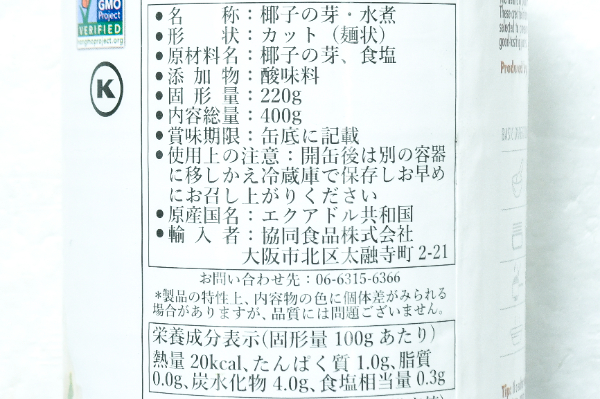 GMO
Project
VERIFIED
nongmoproject.org
K
●名称：椰子の芽・水煮
●形状：カット（麺状）
●原材料名：椰子の芽、食塩
●添加物：酸味料
●固形量：220g
●内容総量：400g
●賞味期限：缶底に記載
●使用上の注意：開缶後は別の容器
に移しかえ冷蔵庫で保存しお早め
にお召し上がりください
●原産国名：エクアドル共和国
●輸入者：協同食品株式会社
大阪市北区太融寺町2-21
お問い合わせ先：06-6315-6366
*製品の特性上、内容物の色に個体差がみられる
場合がありますが、品質には問題ございません。
栄養成分表示(固形量100gあたり)
熱量20kcal、たんぱく質1.0g、脂質
0.0g、炭水化物4.0g、食塩相当量0.3g